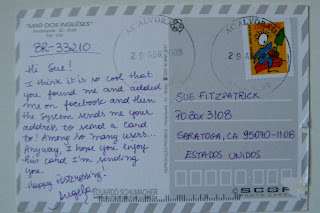 "MAR DOS INGLESES"
BR-33210
Hi Sue!
I think it is so cool that
you found me and added
me on facebook and then
the System sends me your
address to send a Card
to! Among so many users...
Anyway, I hope you enjoy
this card I'm sending
you.
Happy Postcrossing!
Angela
EDUARDO SCHUMACHER
SUE FITZPATRICK
PO BOX 3108
SARATOGA, CA 95070-1108
ESTADOS UNIDOS